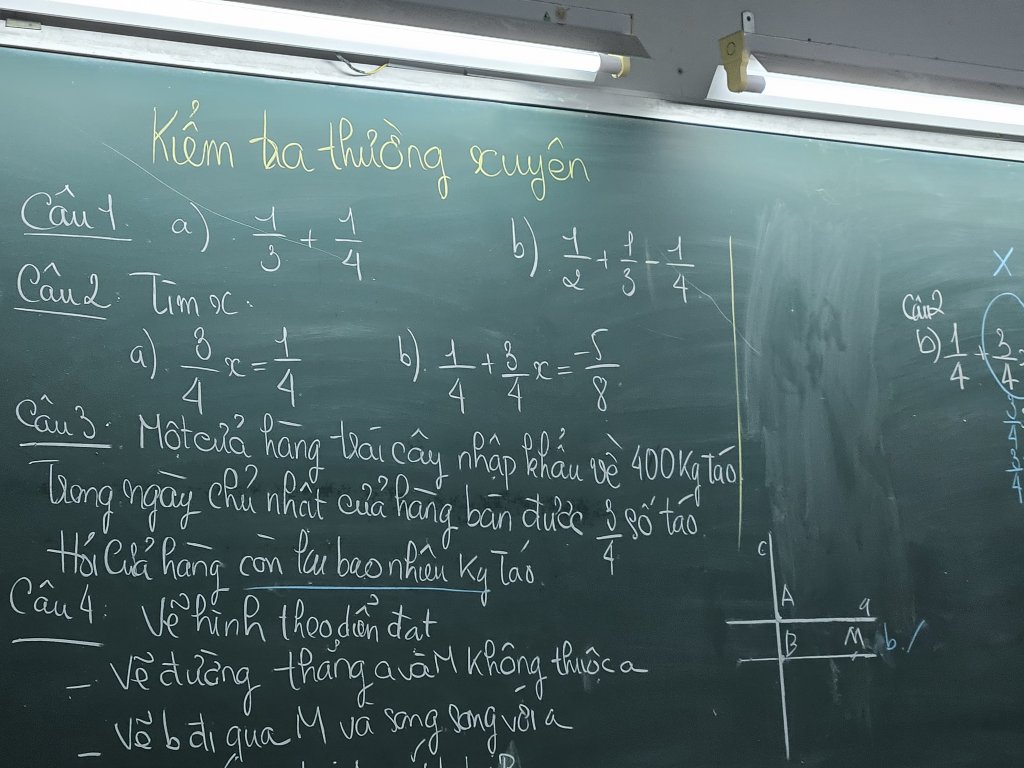 Kiểm tra thường xuyên
Câu 1. a) 1/3 + 1/4 b) 1/2 + 1/3 - 1/4
Câu 2: Tìm x.
a) 3/4 x = 1/4 b) 1/4 + 3/4 x = -5/8
Câu 3. Một cửa hàng trái cây nhập khẩu về 400 Kg táo
Trong ngày chủ nhất cửa hàng bán được 3/4 số táo.
Hỏi Cửa hàng còn lại bao nhiêu Kg Táo.
Câu 4: Vẽ hình theo diễn đạt
- Vẽ đường thẳng a và M không thuộc a
- Vẽ b đi qua M và song song với a
X
Câu 2
b) 1/4 + 3/4
c
A a
B M b